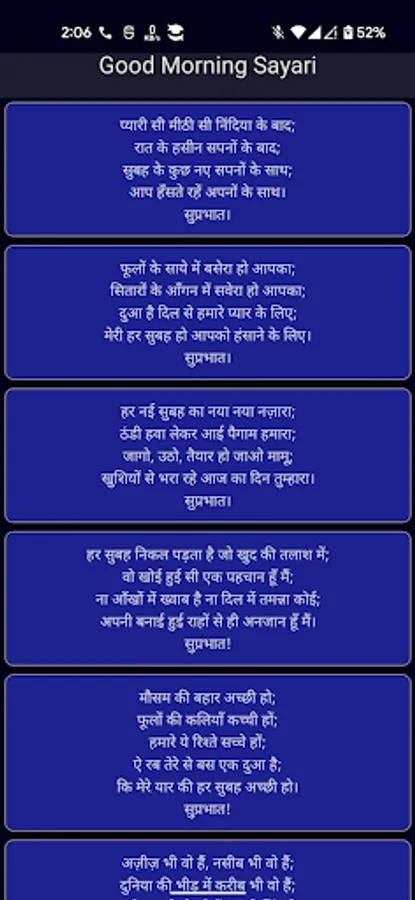 2:06
52%
Good Morning Sayari
प्यारी सी मीठी सी निंदिया के बाद;
रात के हसीन सपनों के बाद;
सुबह के कुछ नए सपनों के साथ;
आप हँसते रहें अपनों के साथ।
सुप्रभात।
फूलों के साये में बसेरा हो आपका;
सितारों के आँगन में सवेरा हो आपका;
दुआ है दिल से हमारे प्यार के लिए;
मेरी हर सुबह हो आपको हंसाने के लिए।
सुप्रभात।
हर नई सुबह का नया नया नज़ारा;
ठंडी हवा लेकर आई पैगाम हमारा;
जागो, उठो, तैयार हो जाओ मामू;
खुशियों से भरा रहे आज का दिन तुम्हारा।
सुप्रभात।
हर सुबह निकल पड़ता है जो खुद की तलाश में;
वो खोई हुई सी एक पहचान हूँ मैं;
ना आँखों में ख्वाब है ना दिल में तमन्ना कोई;
अपनी बनाई हुई राहों से ही अनजान हूँ मैं।
सुप्रभात!
मौसम की बहार अच्छी हो;
फूलों की कलियाँ कच्ची हों;
हमारे ये रिश्ते सच्चे हों;
ऐ रब तेरे से बस एक दुआ है;
कि मेरे यार की हर सुबह अच्छी हो।
सुप्रभात!
अज़ीज़ भी वो हैं, नसीब भी वो हैं;
दुनिया की भीड़ में करीब भी वो हैं;